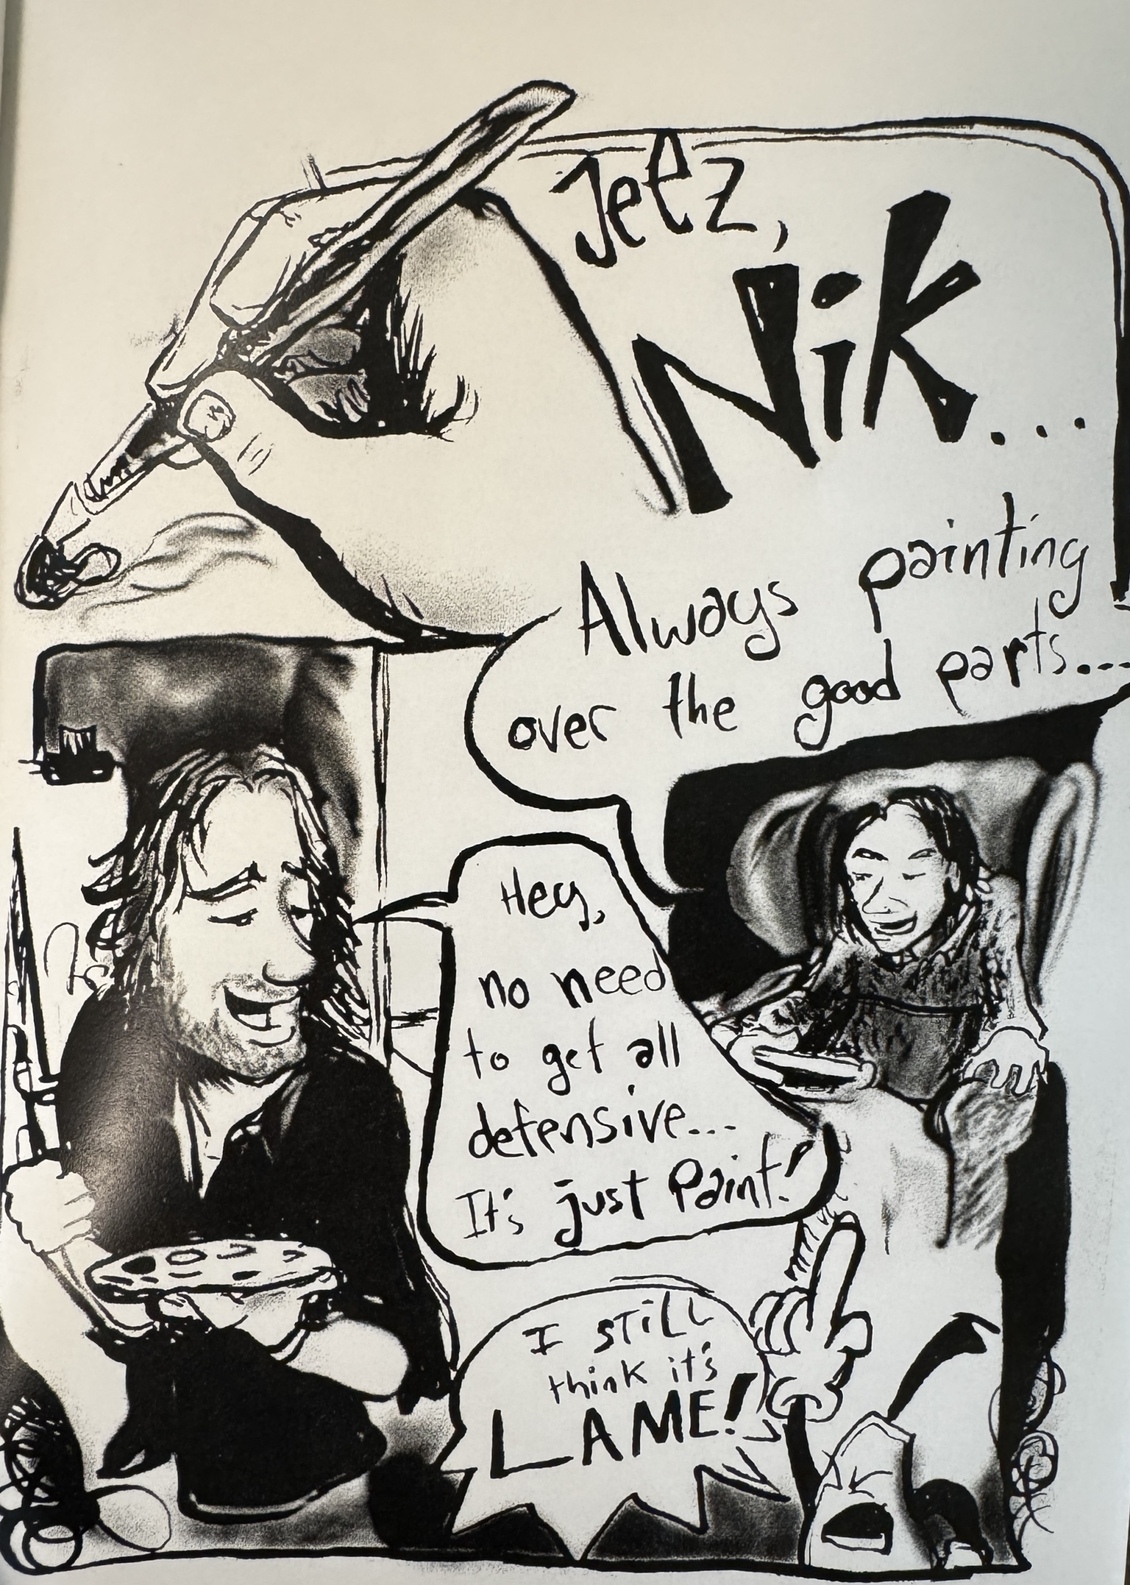 Jeez,
Nik...
Always painting
over the good parts...
Hey,
no need
to get all
defensive...
It's just Paint!
I STiLL
think it's
LAME!